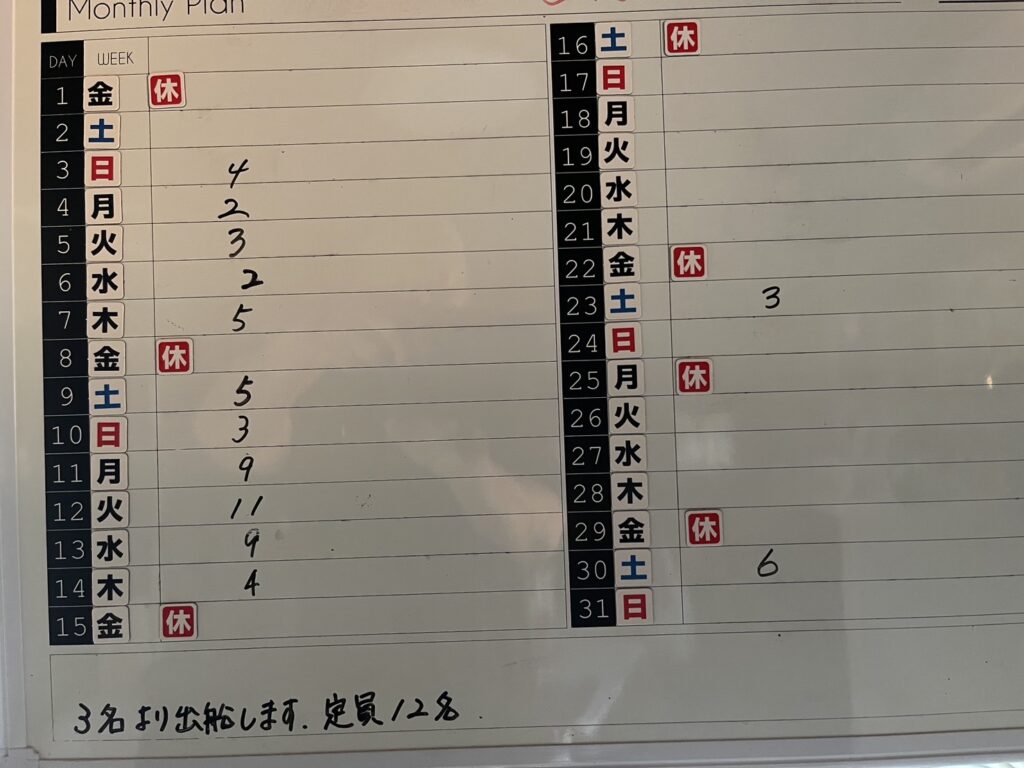 Monthly Plan
DAY WEEK
1 金 休
2 土
3 日 4
4 月 2
5 火 3
6 水 2
7 木 5
8 金 休
9 土 5
10 日 3
11 月 9
12 火 11
13 水 9
14 木 4
15 金 休
16 土 休
17 日
18 月
19 火
20 水
21 木
22 金 休
23 土 3
24 日
25 月 休
26 火
27 水
28 木
29 金 休
30 土 6
31 日
3名より出船します. 定員12名.